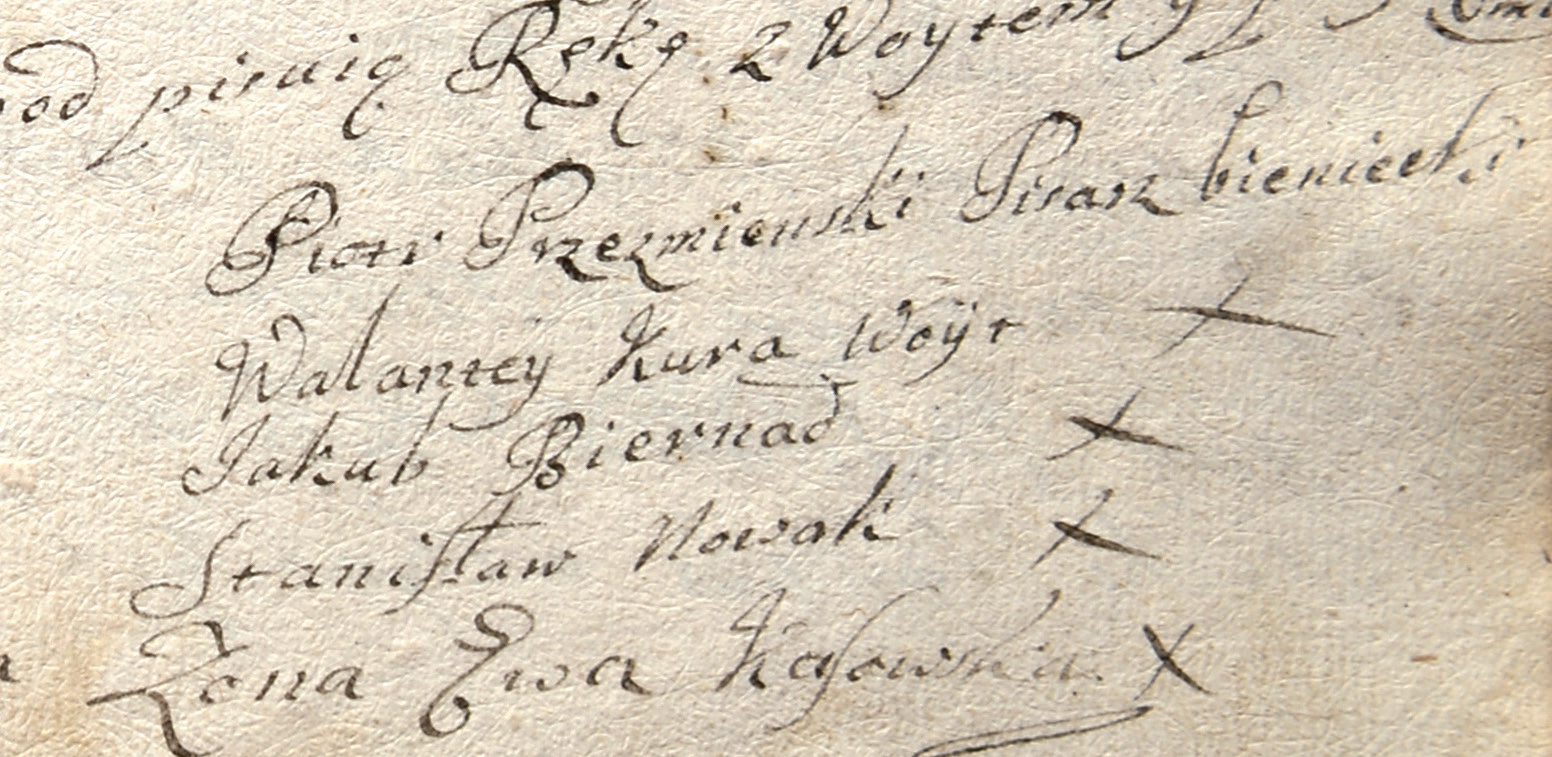 pod pisuię Rękę z Woytem y
Piotr Przezmienski Pisarz bieniecki
Walantey Kura Woyt X
Jakub Biernad X
Stanisław Nowak X
Zona Ewa Kasowska X